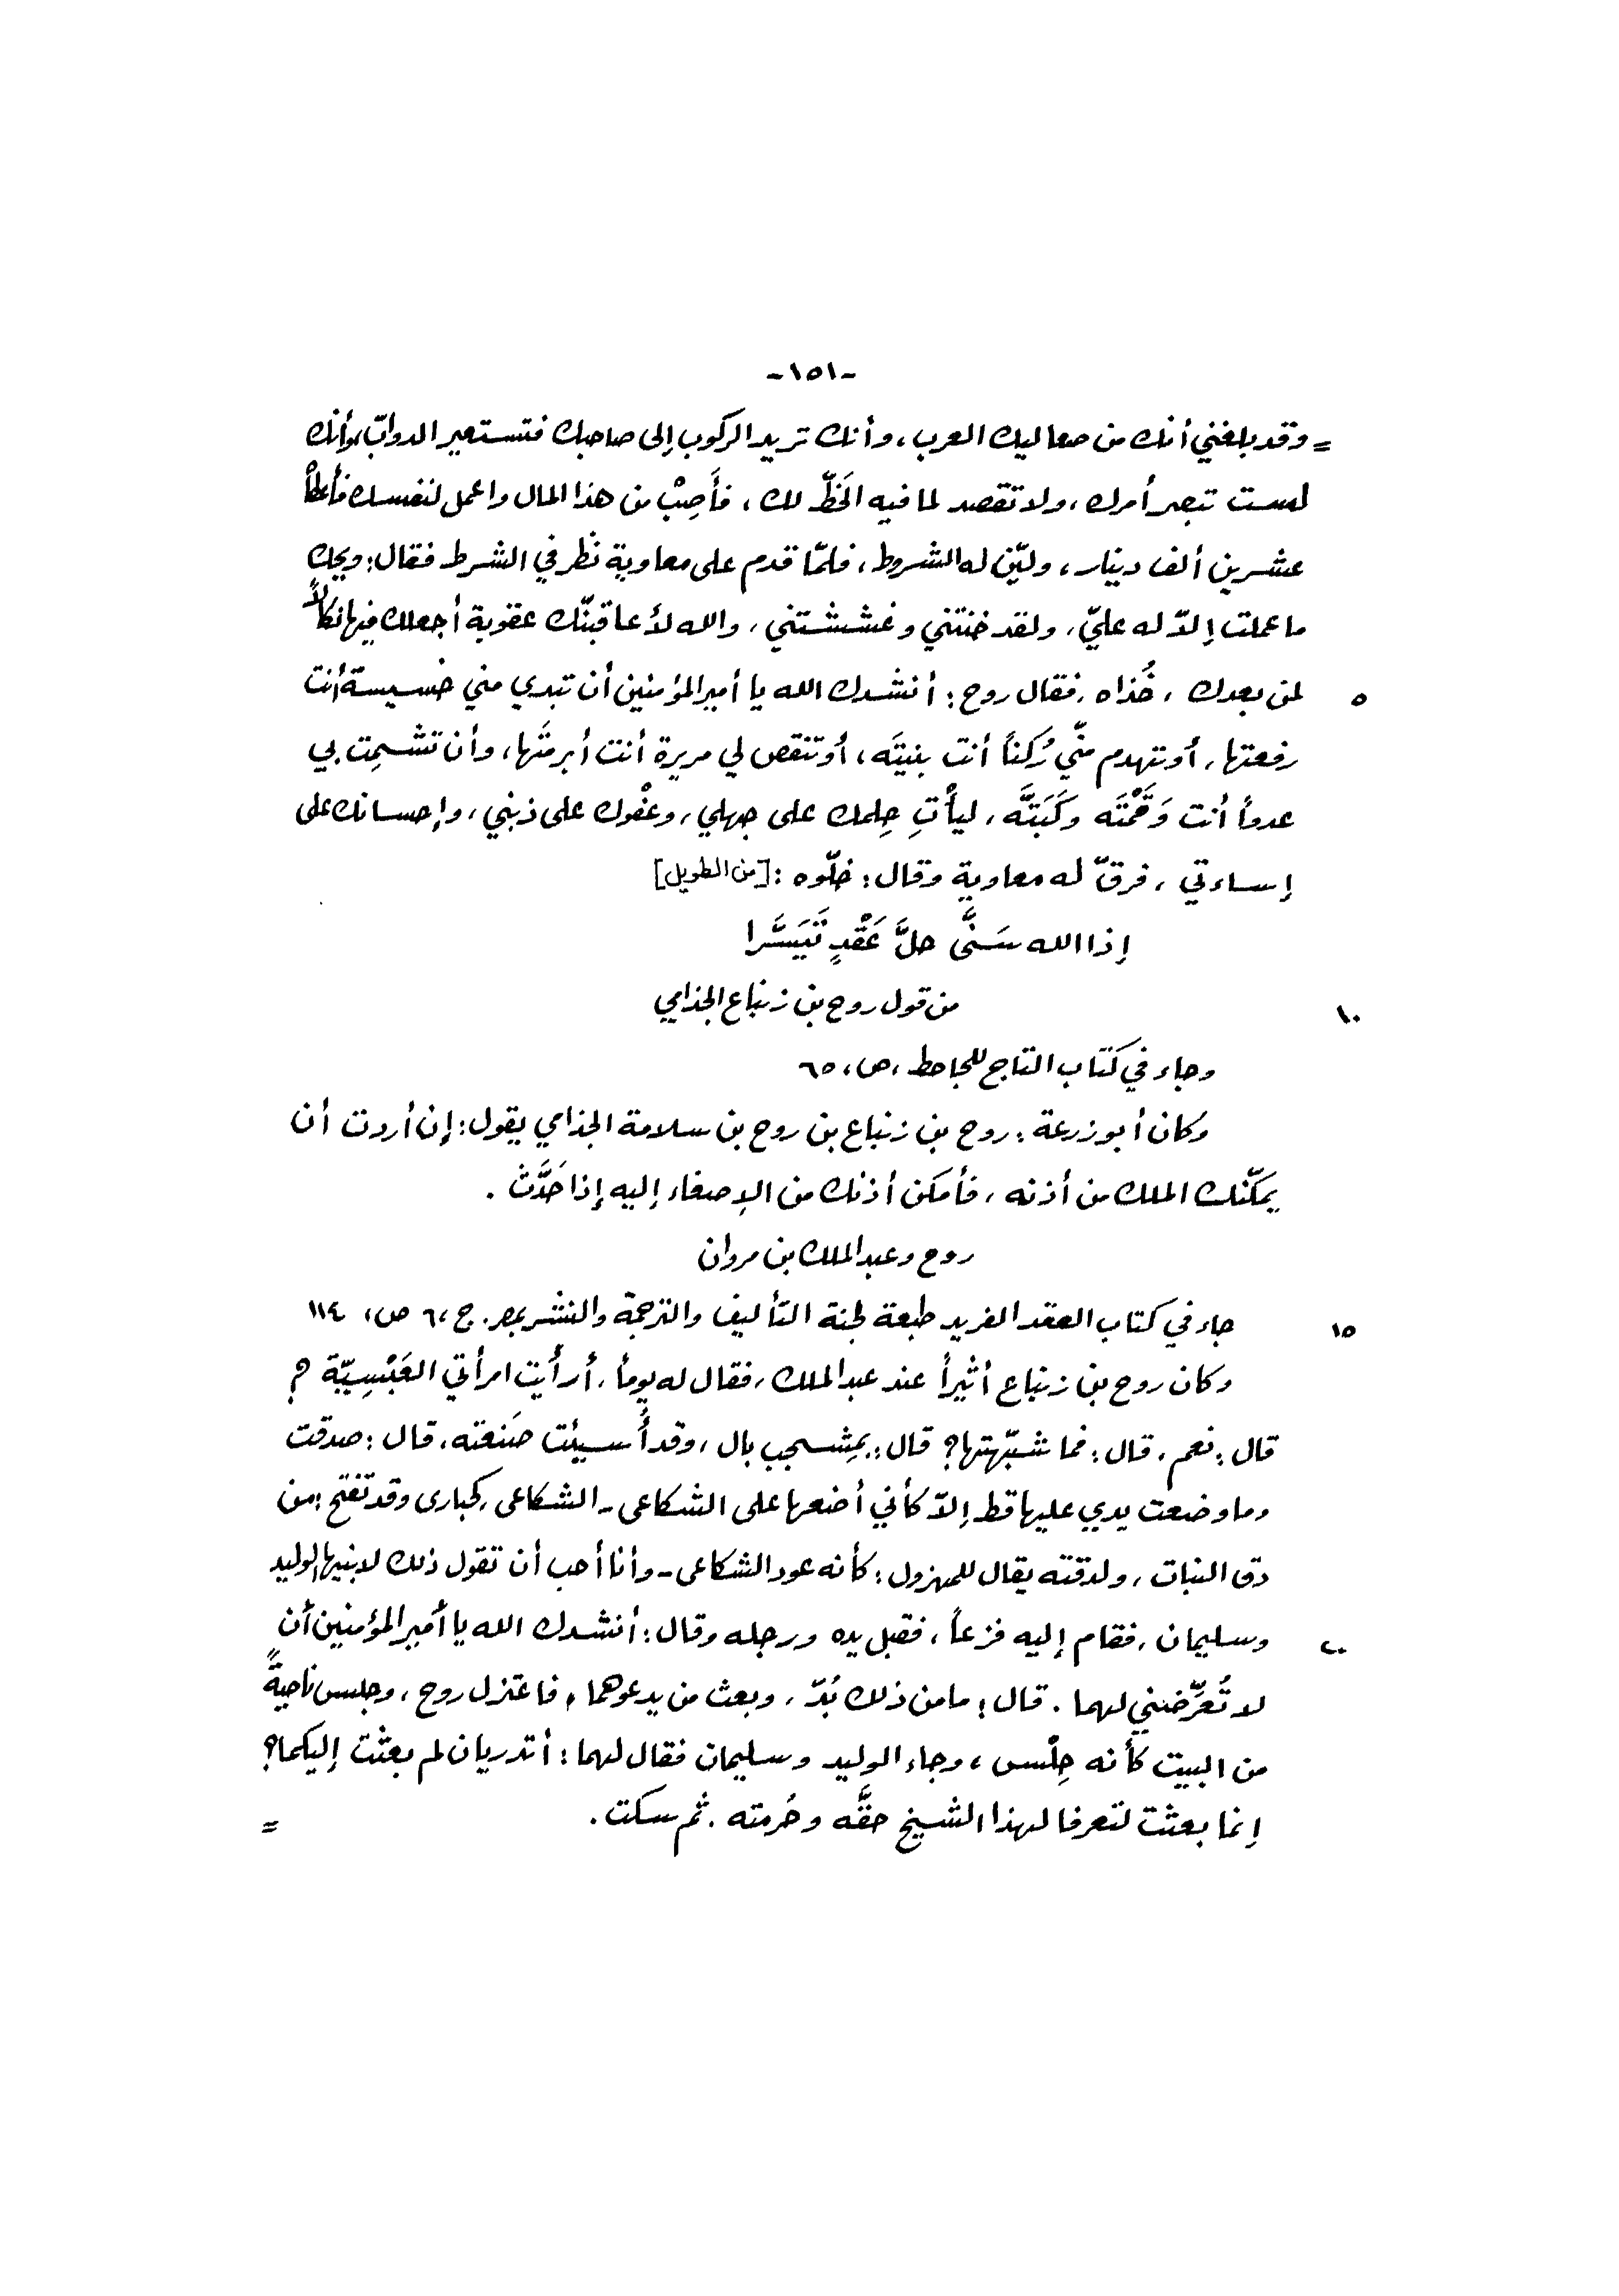 -١٥١-
= وقد بلغني أنك من صعاليك العرب، وأنك تريد الركوب إلى صاحبك فتستعير الدوابّ، وأنك
لست تبصر أمرك، ولا تقصد لما فيه الحَظّ لك، فأَصِبْ من هذا المال واعمل لنفسك فأعطاه
عشرين ألف دينار، وليّن له الشروط، فلمّا قدم على معاوية نظر في الشرط فقال: ويحك
ما عملت إلاّ له عليّ، ولقد خنتني وغششتني، والله لأعاقبنّك عقوبة أجعلك فيها نكالاً
٥ لمن بعدك، خُذاه. فقال روح: أنشدك الله يا أمير المؤمنين أن تبدي مني خسيسة أنت
رفعتها، أو تهدم منّي رُكناً أنت بنيتَه، أو تنقص لي مريرة أنت أبرمتَها، وأن تشمِت بي
عدواً أنت وَقَمْتَه وكَبَتَّه، ليأْتِ حِلمك على جهلي، وعفْوك على ذنبي، وإحسانك على
إساءتي، فرقّ له معاوية وقال: خلّوه: [من الطويل]
إذا الله سَنَّى حلَّ عَقْدٍ تَيَسَّرا
١٠ من قول روح بن زنباع الجذامي
وجاء في كتاب التاج للجاحظ، ص، ٦٥
وكان أبو زرعة: روح بن زنباع بن روح بن سلامة الجذامي يقول: إن أردت أن
يمكّنك الملك من أذنه، فأمكن أذنك من الإصغاء إليه إذا حَدَّث.
روح وعبد الملك بن مروان
١٥ جاء في كتاب العقد الفريد طبعة لجنة التأليف والترجمة والنشر بمصر. ج، ٦ ص، ١١٤
وكان روح بن زنباع أثيراً عند عبد الملك، فقال له يوماً، أرأيت امرأتي العَبْسِيّة؟
قال: نعم، قال: فما شبّهتها؟ قال: بمِشجب بال، وقد أُسيئت صَنعته، قال: صدقت
وما وضعت يدي عليها قط إلاّ كأني أضعها على الشكاعى - الشكاعى، كحبارى وقد تفتح: من
دق النبات، ولدقته يقال للمهزول: كأنه عود الشكاعى - وأنا أحب أن تقول ذلك لابنيها الوليد
٢٠ وسليمان، فقام إليه فزعاً، فقبل يده ورجله وقال: أنشدك الله يا أمير المؤمنين أن
لا تُعرِّضني لهما. قال: ما من ذلك بُدّ، وبعث من يدعوهما، فاعتزل روح، وجلس ناحيةً
من البيت كأنه حِلْس، وجاء الوليد وسليمان فقال لهما: أتدريان لم بعثت إليكما؟
إنما بعثت لتعرفا لهذا الشيخ حقَّه وحُرمته. ثم سكت. =